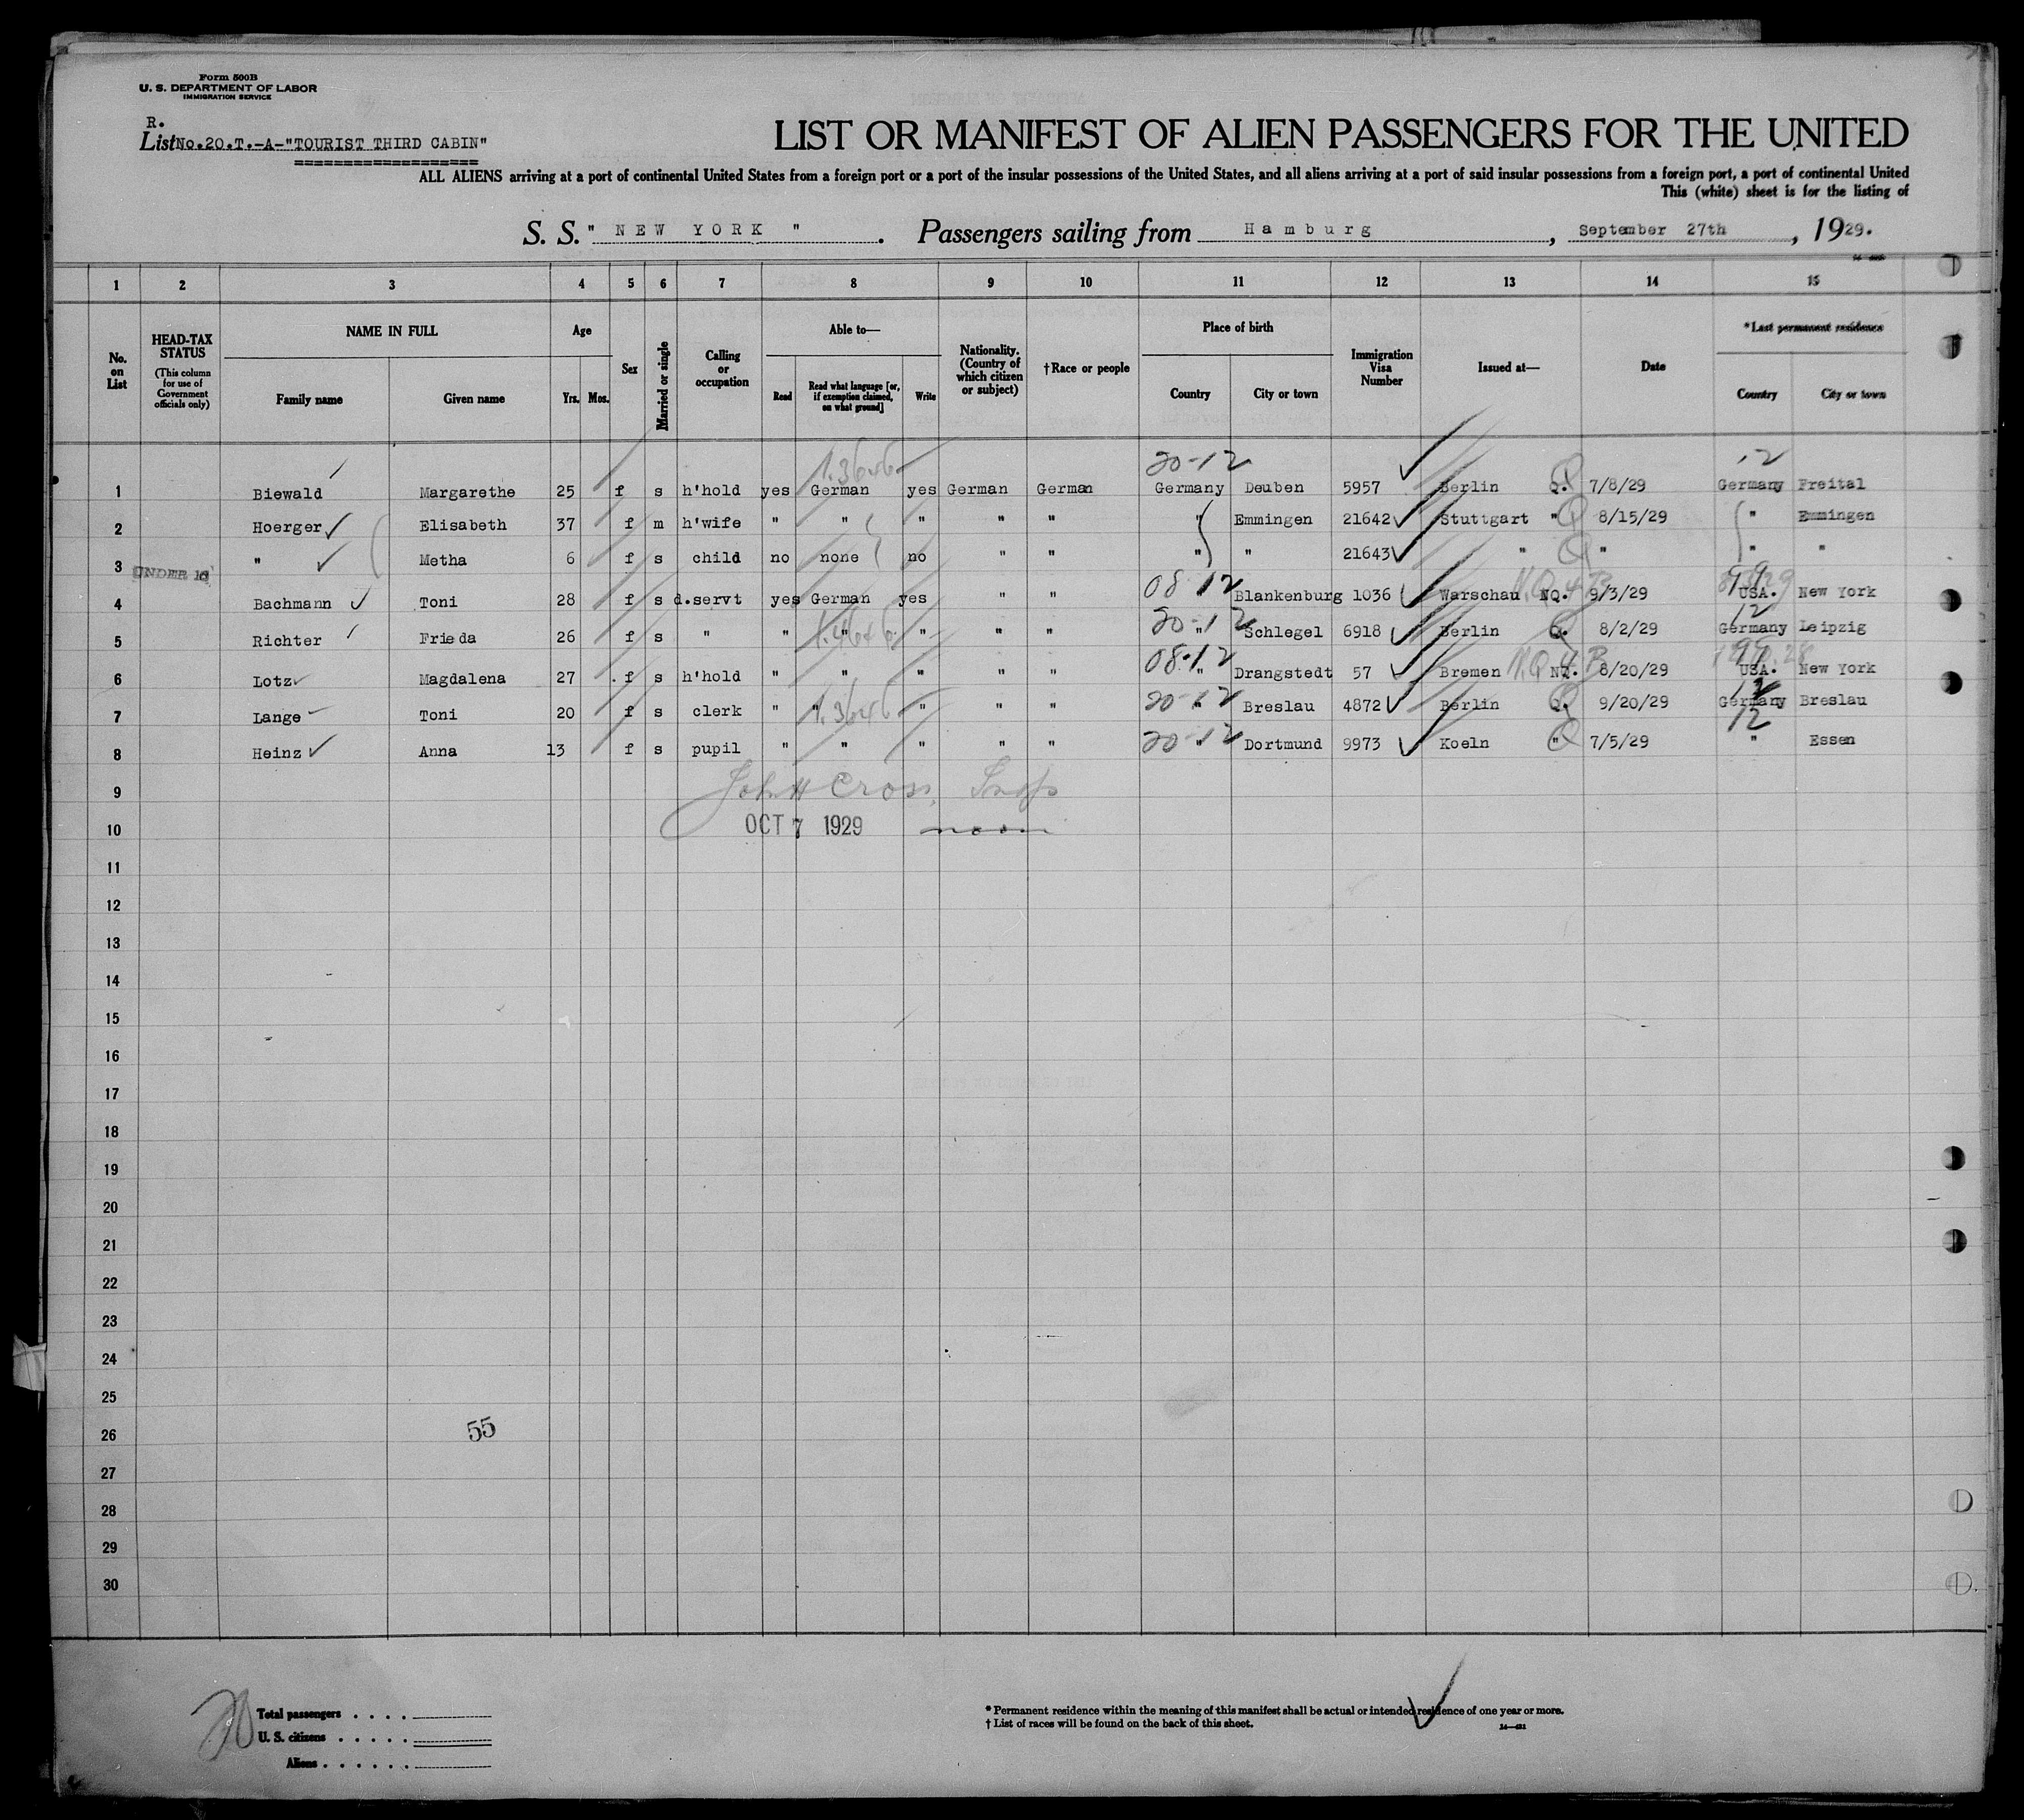 Form 500B
U. S. DEPARTMENT OF LABOR
IMMIGRATION SERVICE
R.
List No.20.T.-A-"TOURIST THIRD CABIN"
LIST OR MANIFEST OF ALIEN PASSENGERS FOR THE UNITED
ALL ALIENS arriving at a port of continental United States from a foreign port or a port of the insular possessions of the United States, and all aliens arriving at a port of said insular possessions from a foreign port, a port of continental United
This (white) sheet is for the listing of
S. S. " NEW YORK " . Passengers sailing from Hamburg , September 27th , 1929.
1 2 3 4 5 6 7 8 9 10 11 12 13 14 15
No. on List
HEAD-TAX STATUS (This column for use of Government officials only)
NAME IN FULL Family name Given name
Age Yrs. Mos.
Sex
Married or single
Calling or occupation
Able to— Read Read what language [or, if exemption claimed, on what ground] Write
Nationality. (Country of which citizen or subject)
†Race or people
Place of birth Country City or town
Immigration Visa Number
Issued at—
Date
*Last permanent residence Country City or town
1.3646 20-12 12
1 Biewald Margarethe 25 f s h'hold yes German yes German German Germany Deuben 5957 Berlin Q. 7/8/29 Germany Freital
2 Hoerger Elisabeth 37 f m h'wife " " " " " " Emmingen 21642 Stuttgart " 8/15/29 " Emmingen
3 UNDER 16 " Metha 6 f s child no none no " " " " 21643 " " " "
08 12 N.Q.4B 99
4 Bachmann Toni 28 f s d.servt yes German yes " " " Blankenburg 1036 Warschau NQ. 9/3/29 USA. New York
20-12 12
5 Richter Frieda 26 f s " " " " " " " Schlegel 6918 Berlin Q. 8/2/29 Germany Leipzig
08-12 N.Q 4B 99
6 Lotz Magdalena 27 f s h'hold " " " " " " Drangstedt 57 Bremen NQ. 8/20/29 USA. New York
1.3646 20-12 12
7 Lange Toni 20 f s clerk " " " " " " Breslau 4872 Berlin Q. 9/20/29 Germany Breslau
20-12 12
8 Heinz Anna 13 f s pupil " " " " " " Dortmund 9973 Koeln " 7/5/29 " Essen
9 John H Cross, Insp
10 OCT 7 1929 noon
11
12
13
14
15
16
17
18
19
20
21
22
23
24
25
26 55
27
28
29
30
Total passengers . . . .
U. S. citizens . . . . .
Aliens . . . . . .
* Permanent residence within the meaning of this manifest shall be actual or intended residence of one year or more.
† List of races will be found on the back of this sheet.